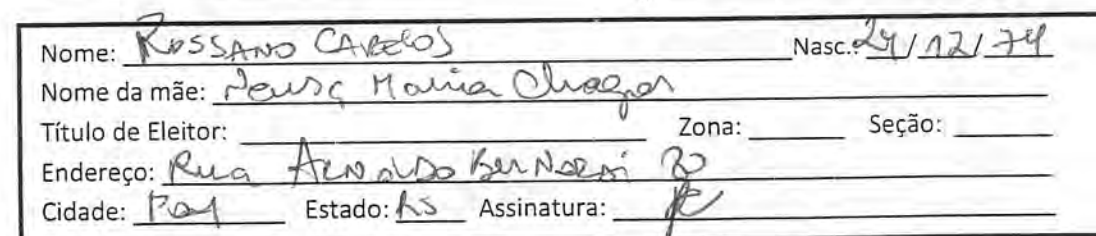 Nome: Rossano Nasc.: 24/12/74
Nome da mãe: Neusa Maria Chagas
Título de Eleitor: Zona: Seção:
Endereço: Rua Arnaldo
Cidade: POA Estado: RS Assinatura: